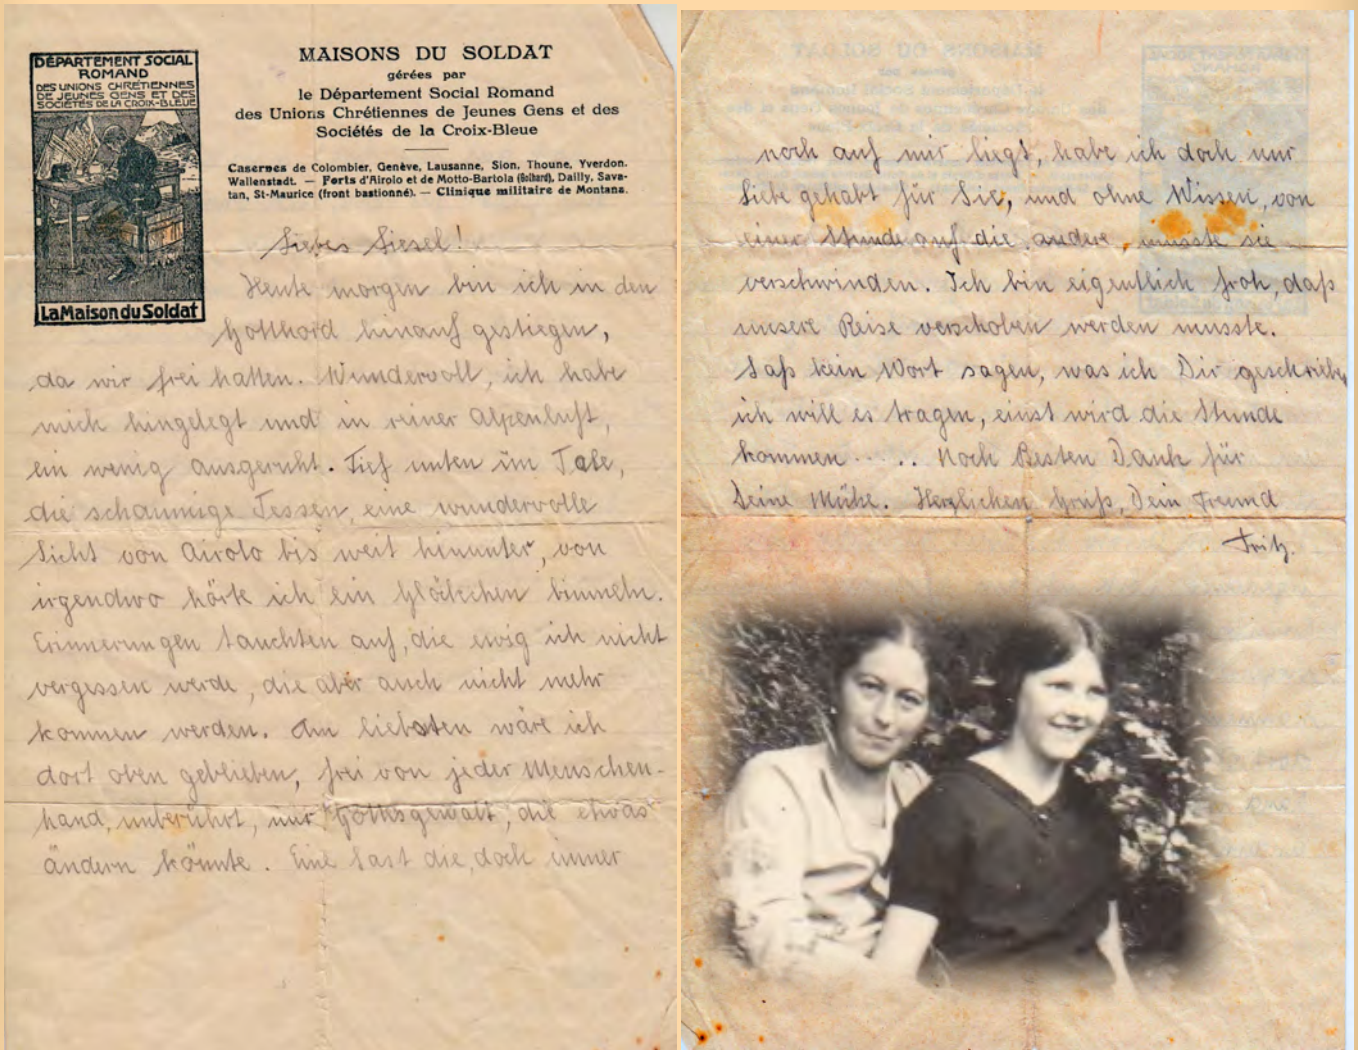 DÉPARTEMENT SOCIAL
ROMAND
DES UNIONS CHRÉTIENNES
DE JEUNES GENS ET DES
SOCIÉTÉS DE LA CROIX-BLEUE
La Maison du Soldat
MAISONS DU SOLDAT
gérées par
le Département Social Romand
des Unions Chrétiennes de Jeunes Gens et des
Sociétés de la Croix-Bleue
Casernes de Colombier, Genève, Lausanne, Sion, Thoune, Yverdon,
Wallenstadt. — Forts d'Airolo et de Motto-Bartola (Gothard), Dailly, Sava-
tan, St-Maurice (front bastionné). — Clinique militaire de Montana.
Liebes Liesel!
Heute morgen bin ich in den
Gotthard hinauf gestiegen,
da wir frei hatten. Wundervoll, ich habe
mich hingelegt und in reiner Alpenluft,
ein wenig ausgeruht. Tief unten im Tale,
die schaumige Tessen, eine wundervolle
Sicht von Airolo bis weit hinunter, von
irgendwo hörte ich ein Glöckchen bimmeln.
Erinnerungen tauchten auf, die ewig ich nicht
vergessen werde, die aber auch nicht mehr
kommen werden. Am liebsten wäre ich
dort oben geblieben, frei von jeder Menschen-
hand, unberührt, nur Gottesgewalt, die etwas
ändern könnte. Eine Last die, doch immer
noch auf mir liegt, habe ich doch nur
Liebe gehabt für Sie, und ohne Wissen, von
einer Stunde auf die andere, musste sie
verschwinden. Ich bin eigentlich froh, daß
unsere Reise verschoben werden musste.
Laß kein Wort sagen, was ich Dir geschrieben,
ich will es tragen, einst wird die Stunde
kommen . . . . Noch Besten Dank für
Deine Mühe. Herzlichen Gruß, Dein Freund
Fritz.